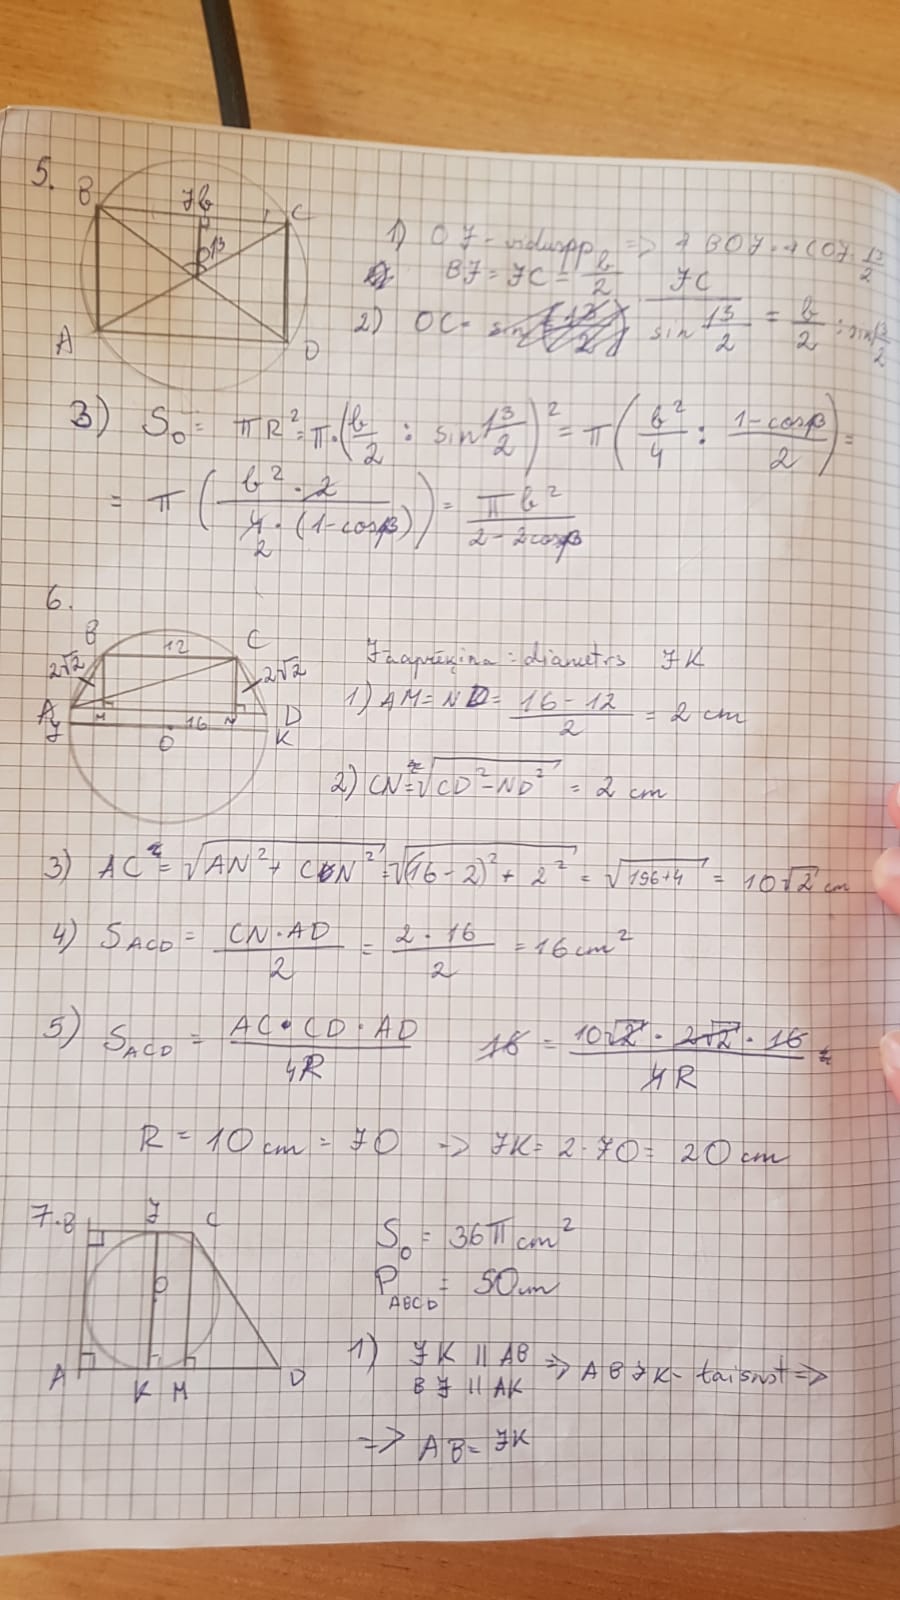 5.
B J b C
O β
A D
1) OJ - viduspp => ∢BOJ = ∢COJ = β/2
BJ = JC = b/2
2) OC = JC / sin β/2 = b/2 : sin β/2
3) S₀ = πR² = π·(b/2 : sin β/2)² = π(b²/4 : (1-cosβ)/2) =
= π(b²·2 / 4·(1-cosβ)) = πb² / 2-2cosβ
6.
B 12 C
2√2 2√2
A M 16 N D
J O K
Jāaprēķina: diametrs JK
1) AM = ND = (16-12)/2 = 2 cm
2) CN = √(CD² - ND²) = 2 cm
3) AC = √(AN² + CN²) = √((16-2)² + 2²) = √(196+4) = 10√2 cm
4) S_ACD = CN·AD / 2 = 2·16 / 2 = 16 cm²
5) S_ACD = AC·CD·AD / 4R 16 = 10√2 · 2√2 · 16 / 4R
R = 10 cm = JO => JK = 2·JO = 20 cm
7.
B J C
O
A K M D
S₀ = 36π cm²
P_ABCD = 50 cm
1) JK || AB
BJ || AK => ABJK - taisnst =>
=> AB = JK